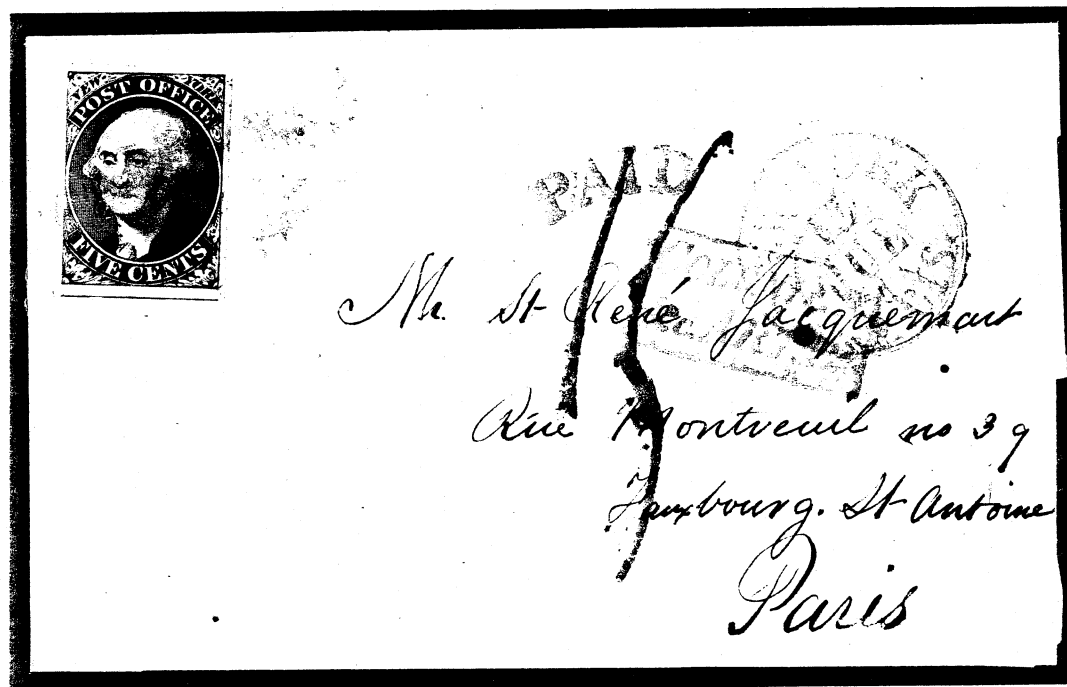 NEW YORK
POST OFFICE
FIVE CENTS
PAID
15
Mr. St René Jacquemart
Rue Montreuil no 39
Fauxbourg. St Antoine
Paris